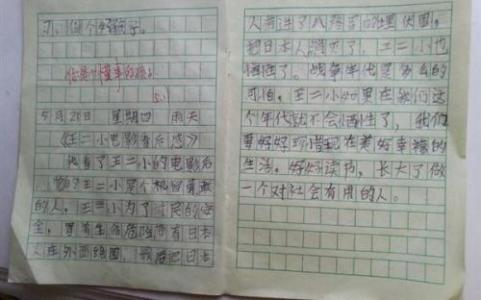 习，做个好孩子。
你是个懂事的孩子
5月28日 星期四 雨天
《王二小电影看后感》
我看了王二小的电影后
觉的王二小是个机智勇敢
的人，王二小为了村民的安
全，冒着生命危险带着日本
人在外面绕圈，最后把日本
人带进了八路军的埋伏圈，
把日本人消灭了，王二小也
牺牲了。战争年代是多么的
可怕，王二小如果在我们这
个年代就不会牺牲了，我们
要好好珍惜现在美好幸福的
生活，好好读书，长大了做
一个对社会有用的人。